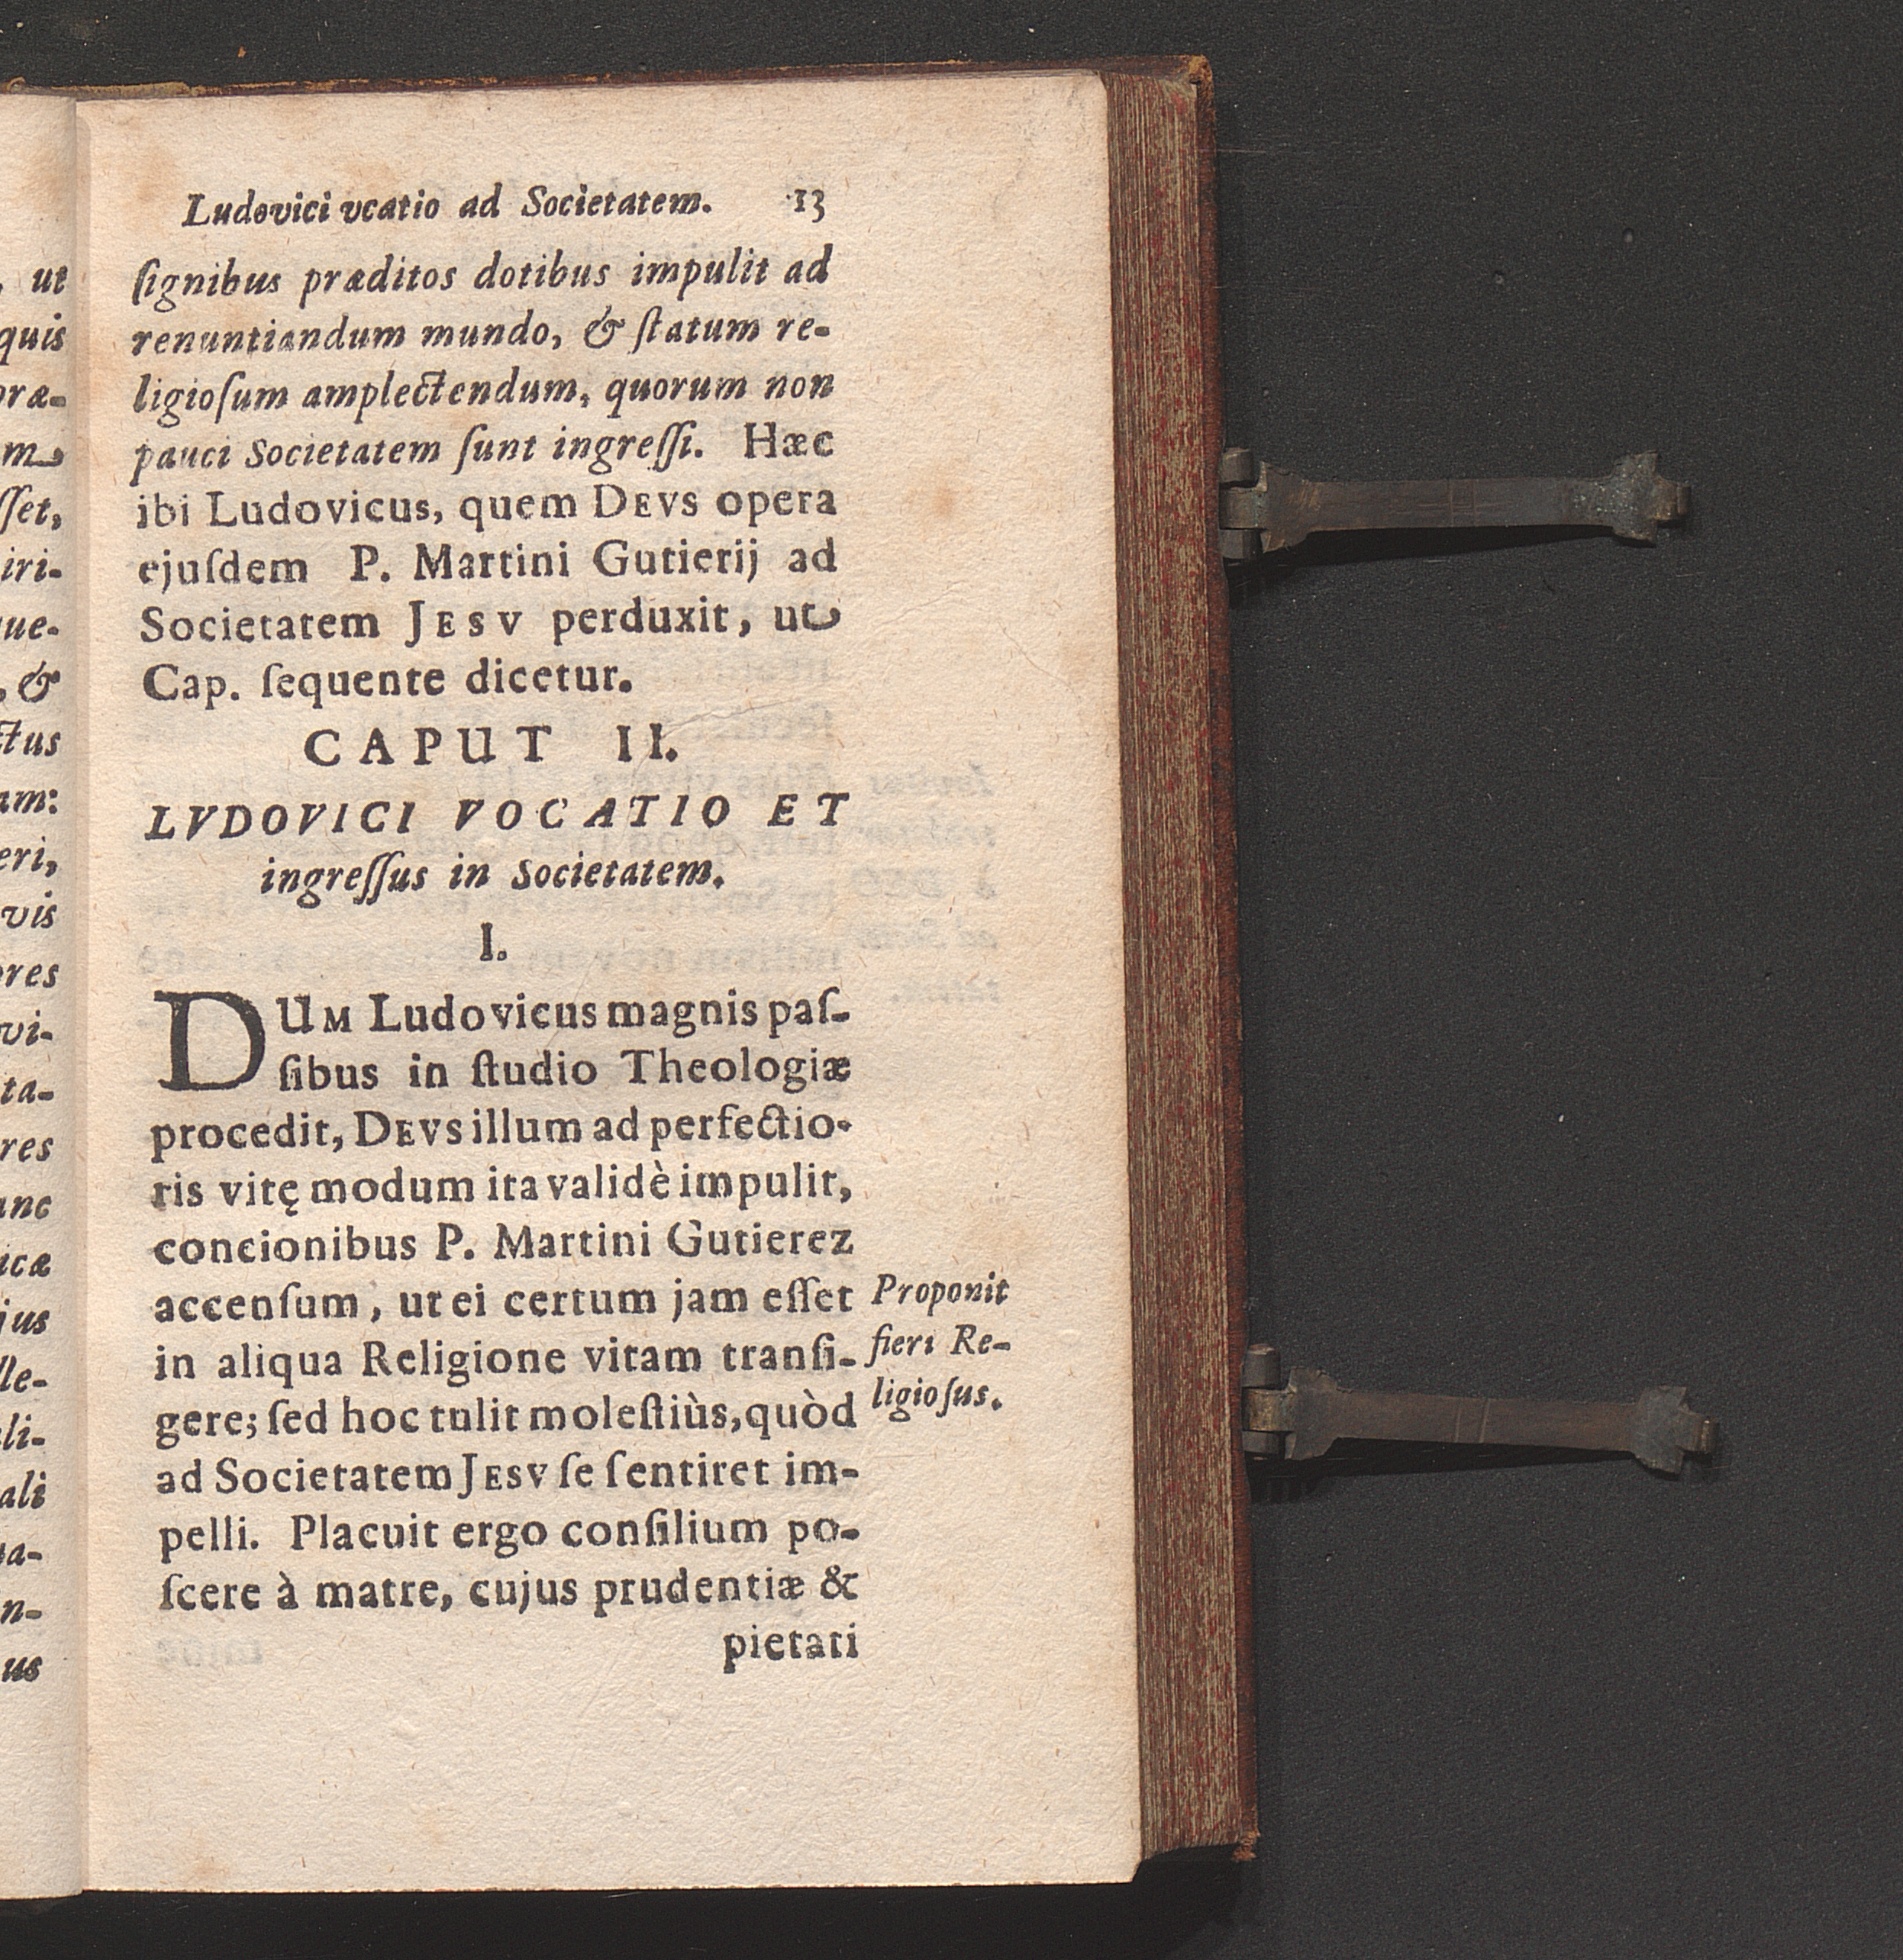 Ludovici vcatio ad Societatem. 13
ſignibus præditos dotibus impulit ad
renuntiandum mundo, & ſtatum re-
ligioſum amplectendum, quorum non
pauci Societatem ſunt ingreſſi. Hæc
ibi Ludovicus, quem DEVS opera
ejuſdem P. Martini Gutierij ad
Societatem JESV perduxit, ut
Cap. ſequente dicetur.
CAPUT II.
LVDOVICI VOCATIO ET
ingreſſus in Societatem.
I.
DUM Ludovicus magnis paſ-
ſibus in ſtudio Theologiæ
procedit, DEVS illum ad perfectio-
ris vitę modum ita validè impulit,
concionibus P. Martini Gutierez
accenſum, ut ei certum jam eſſet
in aliqua Religione vitam tranſi-
gere; ſed hoc tulit moleſtiùs, quòd
ad Societatem JESV ſe ſentiret im-
pelli. Placuit ergo conſilium po-
ſcere à matre, cujus prudentiæ &
pietati
Proponit
fieri Re-
ligioſus.
ut
quis
præ-
m
ſſet,
iri-
ue-
, &
ctus
am:
eri,
vis
ores
vi-
ta-
res
anc
icæ
jus
lle-
li-
ali
a-
n-
us